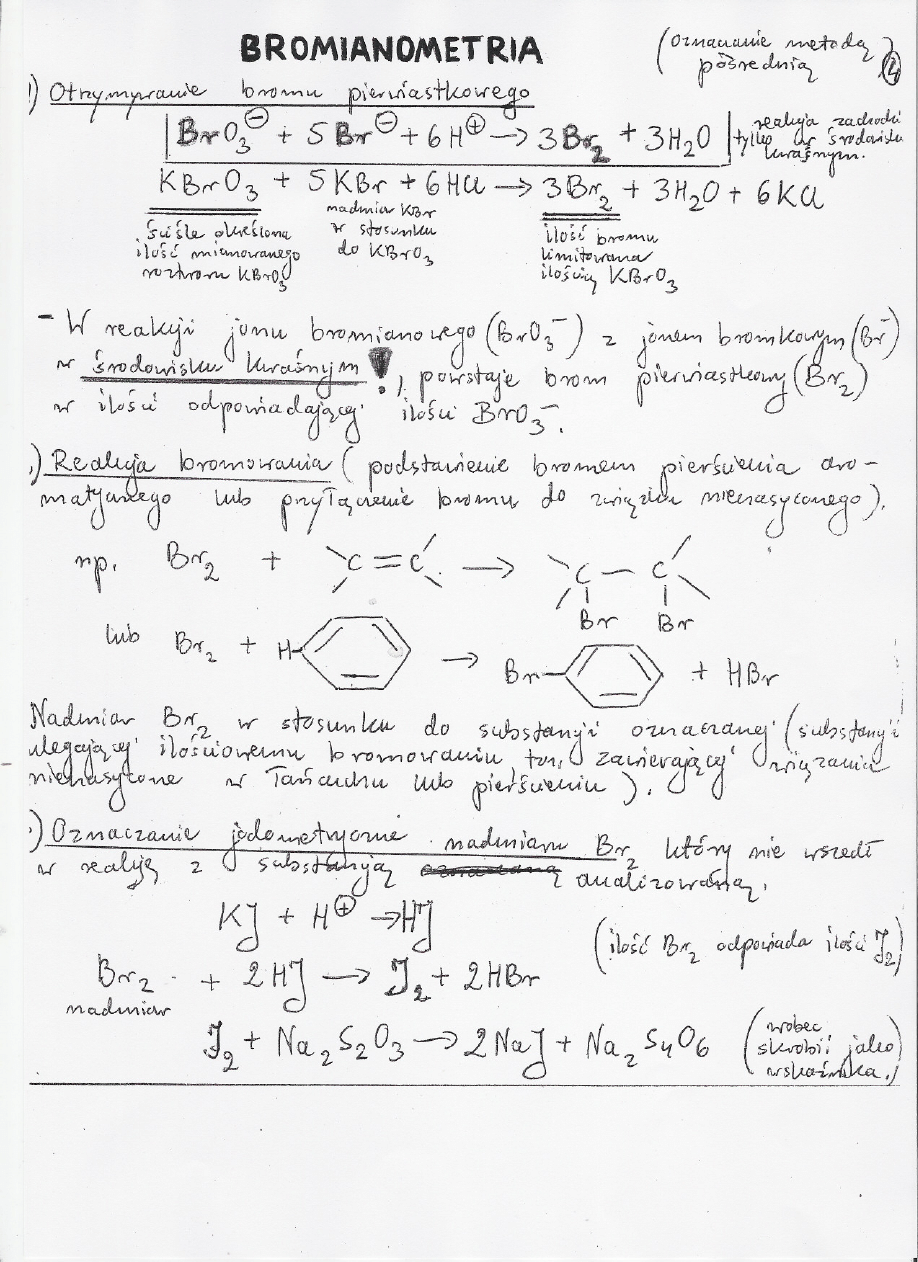 BROMIANOMETRIA
(oznaczanie metodą
pośrednią)
4
1) Otrzymywanie bromu pierwiastkowego
BrO₃⊖ + 5Br⊖ + 6H⊕ → 3Br₂ + 3H₂O
reakcja zachodzi
tylko w środowisku
kwaśnym.
KBrO₃ + 5KBr + 6HCl → 3Br₂ + 3H₂O + 6KCl
ściśle określona
ilość mianowanego
roztworu KBrO₃
nadmiar KBr
w stosunku
do KBrO₃
ilość bromu
limitowana
ilością KBrO₃
- W reakcji jonu bromianowego (BrO₃⁻) z jonem bromkowym (Br⁻)
w środowisku kwaśnym !, powstaje brom pierwiastkowy (Br₂)
w ilości odpowiadającej ilości BrO₃⁻.
) Reakcja bromowania (podstawienie bromem pierścienia aro-
matycznego lub przyłączenie bromu do związku nienasyconego).
np. Br₂ + C=C → C-C
Br Br
lub Br₂ + H- → Br- + HBr
Nadmiar Br₂ w stosunku do substancji oznaczanej (substancji
ulegającej ilościowemu bromowaniu, tzn. zawierającej wiązania
nienasycone w łańcuchu lub pierścieniu).
) Oznaczanie jodometryczne nadmiaru Br₂ który nie wszedł
w reakcję z substancją analizowaną.
KJ + H⊕ → HJ
(ilość Br₂ odpowiada ilości J₂)
Br₂ + 2HJ → J₂ + 2HBr
nadmiar
J₂ + Na₂S₂O₃ → 2NaJ + Na₂S₄O₆
(wobec
skrobii jako
wskaźnika.)